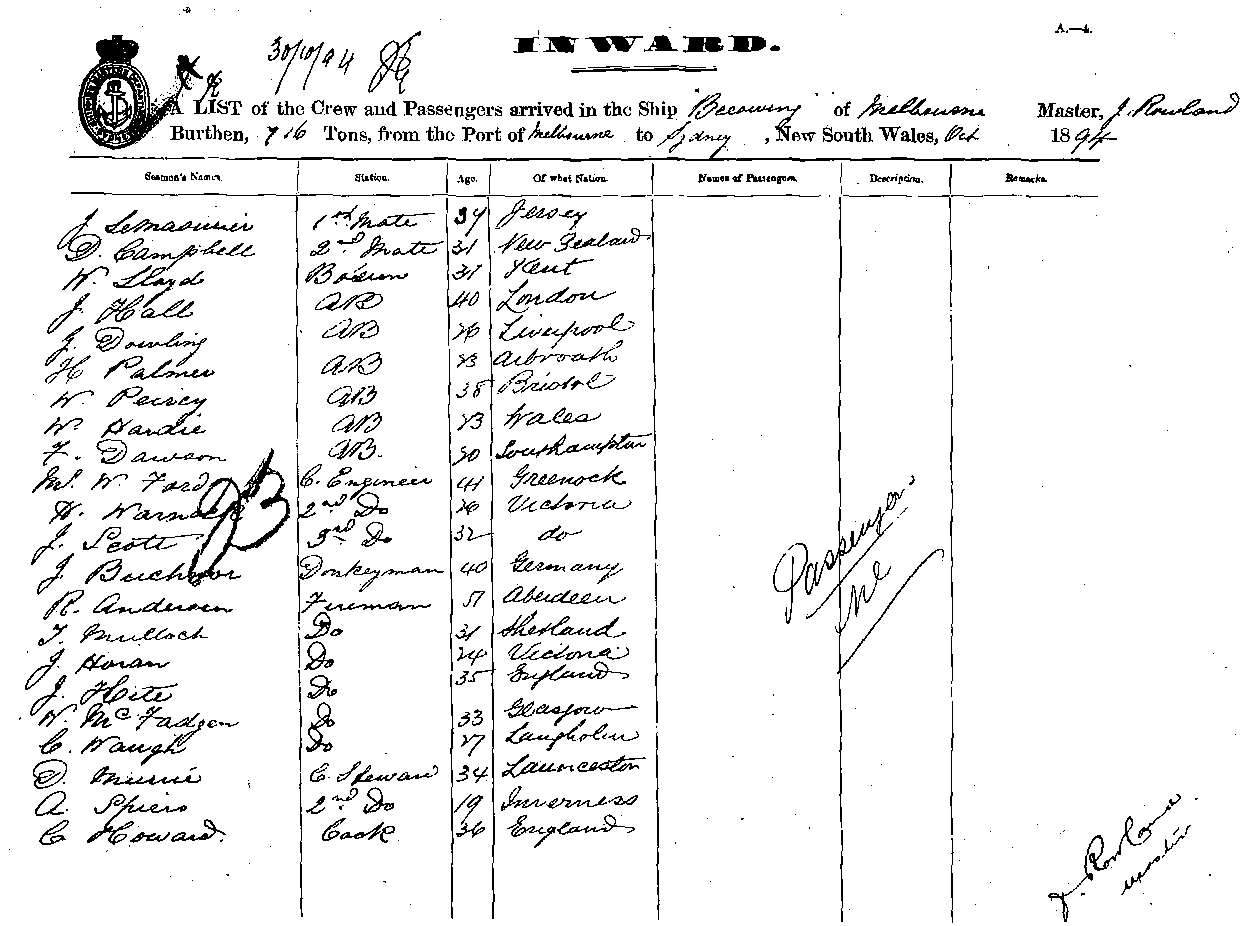 A.—4.
30/10/94
INWARD.
A LIST of the Crew and Passengers arrived in the Ship "Beeswing" of Melbourne Master, J. Rowland
Burthen, 716 Tons, from the Port of Melbourne to Sydney, New South Wales, Oct 1894
Seamen's Names. Station. Age. Of what Nation. Names of Passengers. Description. Remarks.
J. Lemasurier 1st Mate 37 Jersey
D. Campbell 2nd Mate 31 New Zealand
W. Lloyd Bosun 31 Kent
J. Hall AB 40 London
J. Dowling AB 26 Liverpool
H Palmer AB 23 Arbroath
W. Peircy AB 38 Bristol
W. Hardie AB 23 Wales
F. Dawson AB. 30 Southampton
W. Ford C. Engineer 41 Greenock
H. Warnock 2nd Do 26 Victoria
J. Scott 3rd Do 32 do
J. Donkeyman 40 Germany
R. Anderson Fireman 51 Aberdeen
T. Mulloch Do 31 Shetland
J. Horan Do 24 Victoria
J. Hite Do 35 England
W. McFadgen Do 33 Glasgow
C. Waugh Do 27 Langholm
D. Murrie C. Steward 34 Launceston
A. Spiers 2nd Do 19 Inverness
C Howard. Cook 36 England
23
Passenger
J. Rowland
master